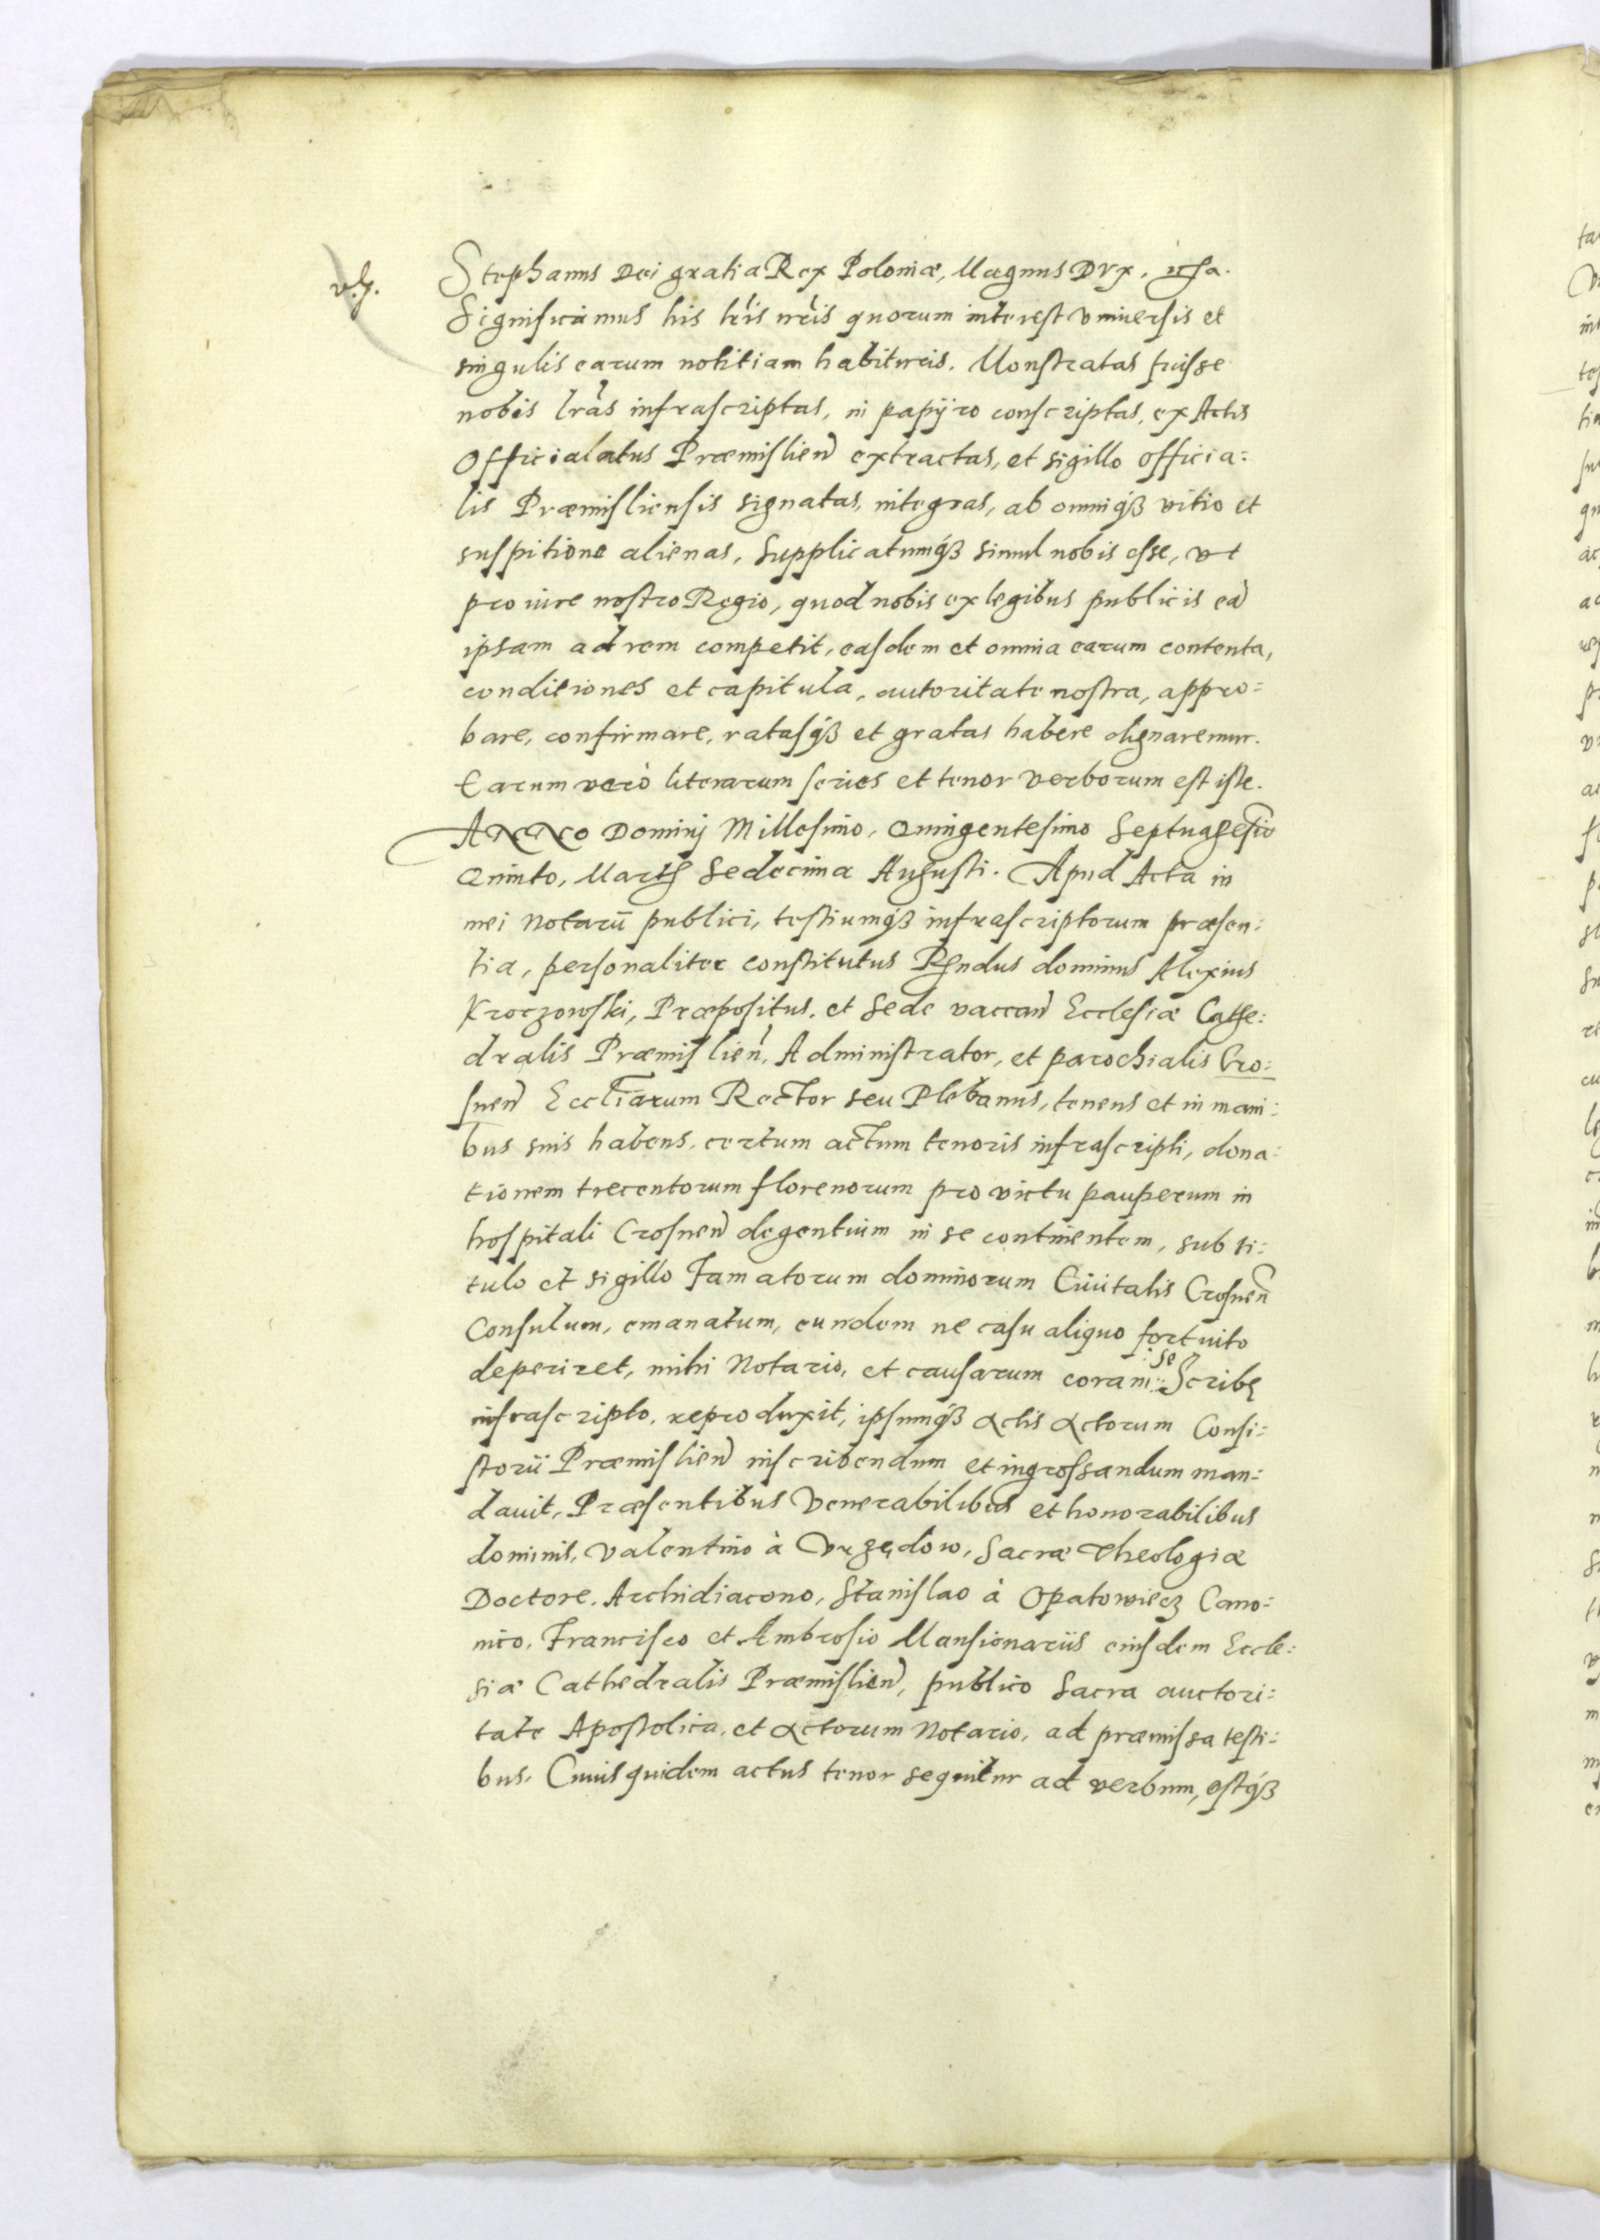 Stephanus Dei gratia Rex Poloniæ, Magnus Dux.
Significamus his lr̃is nr̃is quorum interest vniuersis et
singulis earum notitiam habituris. Monstratas fuisse
nobis lrãs infrascriptas, in papÿro conscriptas, ex Actis
Officialatus Præmislien̄ extractas, et sigillo officia:
lis Præmisliensis signatas, integras, ab omniq́ꝫ vitio et
suspitione alienas, Supplicatumq́ꝫ simul nobis esse, vt
pro iure nostro Regio, quod nobis ex legibus publicis eā
ipsam ad rem competit, easdem et omnia earum contenta,
conditiones et capitula, autoritate nostra, appro:
bare, confirmare, ratasq́ꝫ et gratas habere dignaremur.
Earum verò literarum series et tenor verborum est iste.
ANNO Dominj Millesimo, Quingentesimo Septuagesĩo
Quinto, Martꝭ Sedecima Augusti. Apud Acta in
mei Notarii publici, testiumq́ꝫ infrascriptorum præsen:
tia, personaliter constitutus Rn̄dus dominus Alexius
Kroczowski, Præpositus, et Sede vaccan̄ Ecclesiæ Cathe:
dralis Præmislien̄, Administrator, et parochialis Cro:
snen̄ Eccl̃iarum Rector seu Plebanus, tenens et in mani:
bus suis habens, certum actum tenoris infrascripti, dona:
tionem trecentorum florenorum pro victu pauperum in
hospitali Crosnen̄ degentium in se continentem, sub ti:
tulo et sigillo Famatorum dominorum Ciuitatis Crosnen̄
Consulum, emanatum, eundem ne casu aliquo fortuito
deperiret, mihi Notario, et causarum coram se Scribę
infrascripto, reproduxit, ipsumq́ꝫ actis actorum Consi:
storii Præmislien̄ inscribendum et ingrossandum man:
dauit, Præsentibus Venerabilibus et honorabilibus
dominis, Valentino à Vrzędow, Sacræ Theologiæ
Doctore, Archidiacono, Stanislao à Opatowiecz Cano:
nico, Francisco et Ambrosio Mansionariis eiusdem Eccle:
siæ Cathedralis Præmislien̄, publico Sacra auctori:
tate Apostolica, et actorum Notario, ad præmissa testi:
bus. Cuius quidem actus tenor sequitur ad verbum, estq́ꝫ